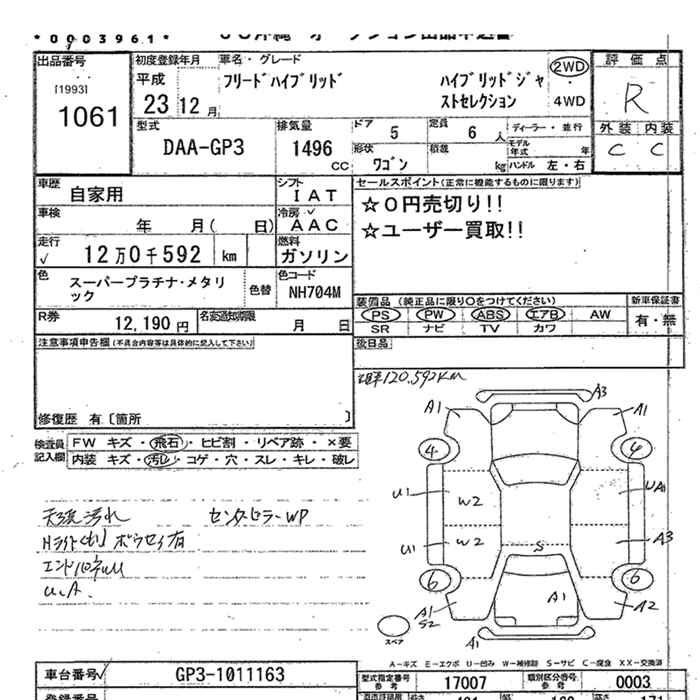 *0003961*
出品番号
[1993]
1061
初度登録年月
平成
23 12 月
車名・グレード
フリードハイブリッド
ハイブリッドジャストセレクション
2WD
・
4WD
評価点
R
外装 内装
C C
型式
DAA-GP3
排気量
1496
CC
ドア
5
定員
6 人
ディーラー・並行
モデル年式 年
形状
ワゴン
積載
kg
ハンドル 左・右
車歴
自家用
シフト
IAT
車検
年 月( 日)
冷房
AAC
走行
12万0千592 km
燃料
ガソリン
色
スーパープラチナ・メタリック
色替
色コード
NH704M
R券
12,190 円
名変通知期限
月 日
セールスポイント(正常に機能するものに限ります)
☆0円売切り!!
☆ユーザー買取!!
装備品 (純正品に限り○をつけてください)
新車保証書
PS PW ABS エアB AW
有・無
SR ナビ TV カワ
後日品
注意事項申告欄(不具合内容等は具体的に記入して下さい)
修復歴 有〔箇所 〕
検査員記入欄
FW キズ・飛石・ヒビ割・リペア跡・×要
内装 キズ・汚レ・コゲ・穴・スレ・キレ・破レ
120,592km
A3
A1
A1
4
4
U1
W2
UA1
U1
W2
A3
S
6
6
A1
A1
S2
A2
A1
スペア
天張汚れ
センターピラーWP
U.A.
A-キズ E-エクボ U-凹み W-補修跡 S-サビ C-腐食 XX-交換済
車台番号
GP3-1011163
型式指定番号
17007
類別区分番号
0003
登録番号